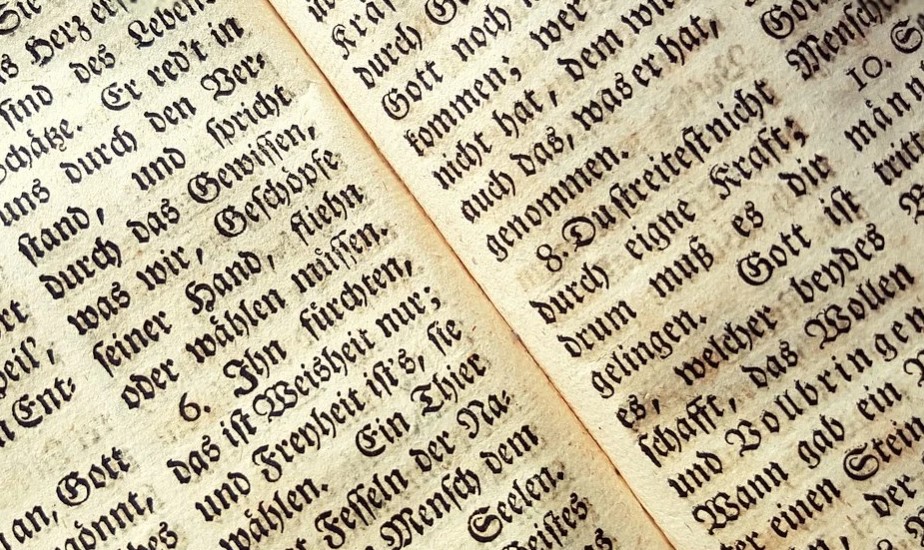 Sie
Herz
sind des Leben
Er red't in
uns durch den Ver-
stand, und spricht
durch das Gewissen,
was wir, Geschöpfe
seiner Hand, fliehn
oder wählen müssen.
6. Ihn fürchten,
das ist Weisheit nur;
und Freyheit ist's, sie
wählen. Ein Thier
Fesseln der Na-
Mensch dem
Seelen.
Geistes
Ent-
an, Gott
Kraf
durch G
Gott noch
kommen; wer
nicht hat, dem wir
auch das, was er hat,
genommen.
8. Du streitest nicht
durch eigne Kraft;
drum muß es dir
gelingen. Gott ist
es, welcher beydes
schafft, das Wollen
und Vollbringen.
Wann gab ein
einen Stein
der
Mensche
10.